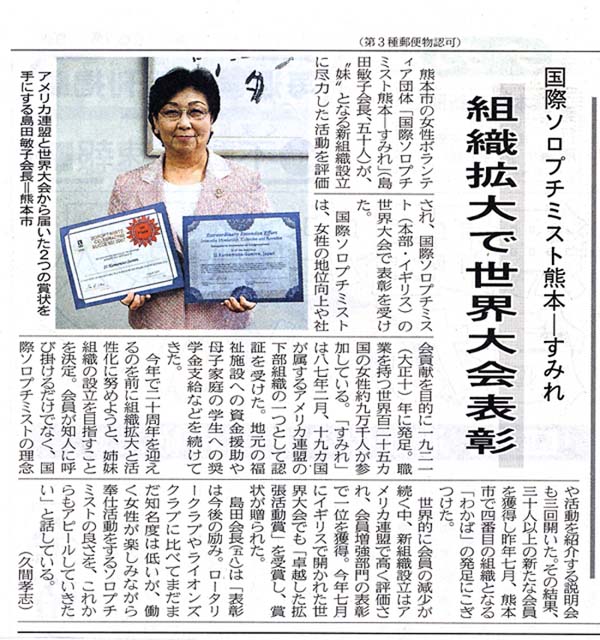 (第3種郵便物認可)
国際ソロプチミスト熊本―すみれ
組織拡大で世界大会表彰
熊本市の女性ボランテ
ィア団体「国際ソロプチ
ミスト熊本―すみれ」(島
田敏子会長、五十人)が、
〝妹〟となる新組織設立
に尽力した活動を評価
され、国際ソロプチミス
ト(本部・イギリス)の
世界大会で表彰を受け
た。
国際ソロプチミスト
は、女性の地位向上や社
会貢献を目的に一九二一
(大正十)年に発足。職
業を持つ世界百二十五カ
国の女性約九万千人が参
加している。「すみれ」
は八七年二月、十九カ国
が属するアメリカ連盟の
下部組織の一つとして認
証を受けた。地元の福
祉施設への資金援助や
母子家庭の学生への奨
学金支給などを続けて
きた。
今年で二十周年を迎え
るのを前に組織拡大と活
性化に努めようと、姉妹
組織の設立を目指すこと
を決定。会員が知人に呼
び掛けるだけでなく、国
際ソロプチミストの理念
や活動を紹介する説明会
も三回開いた。その結果、
三十人以上の新たな会員
を獲得し昨年七月、熊本
市で四番目の組織となる
「わかば」の発足にこぎ
つけた。
世界的に会員の減少が
続く中、新組織設立はア
メリカ連盟で高く評価さ
れ、会員増強部門の表彰
で一位を獲得。今年七月
にイギリスで開かれた世
界大会でも「卓越した拡
張活動賞」を受賞し、賞
状が贈られた。
島田会長(五八)は「表彰
は今後の励み。ロータリ
ークラブやライオンズ
クラブに比べてまだま
だ知名度は低いが、働
く女性が楽しみながら
奉仕活動をするソロプチ
ミストの良さを、これか
らもアピールしていきた
い」と話している。
(久間孝志)
アメリカ連盟と世界大会から届いた2つの賞状を
手にする島田敏子会長=熊本市
Extraordinary Extension Effort
SI Kumamoto-Sumire, Japan